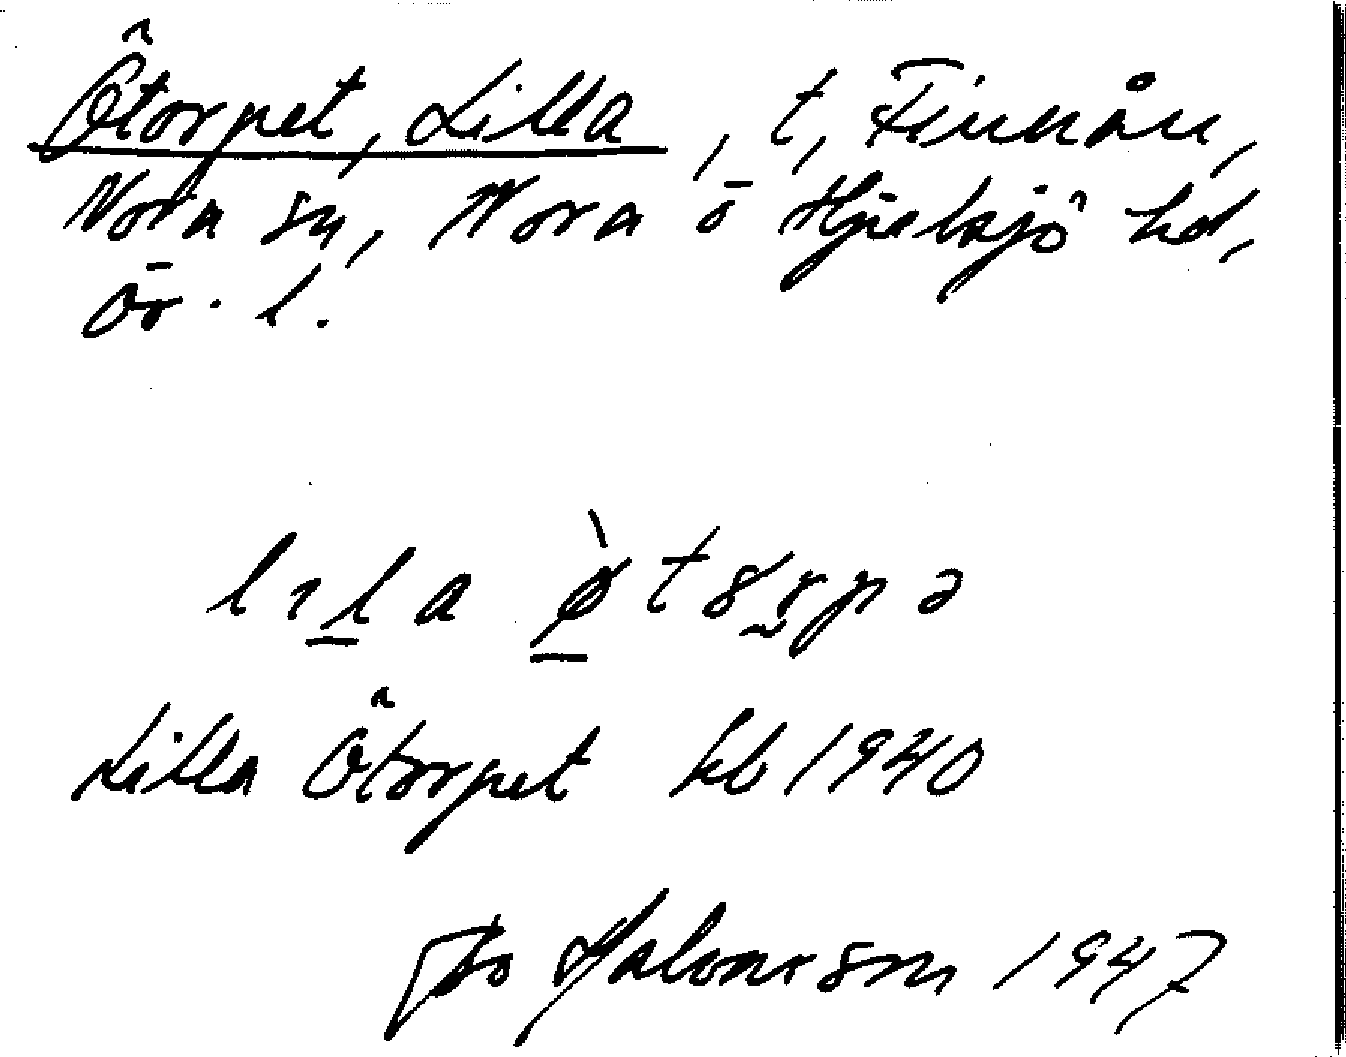 Ötorpet, Lilla, t, Finnån,
Nora sn, Nora o Hjulsjö hd,
Ör. l.
lɪla ø̀torpə
Lilla Ötorpet kb 1940
Halvarson 1947